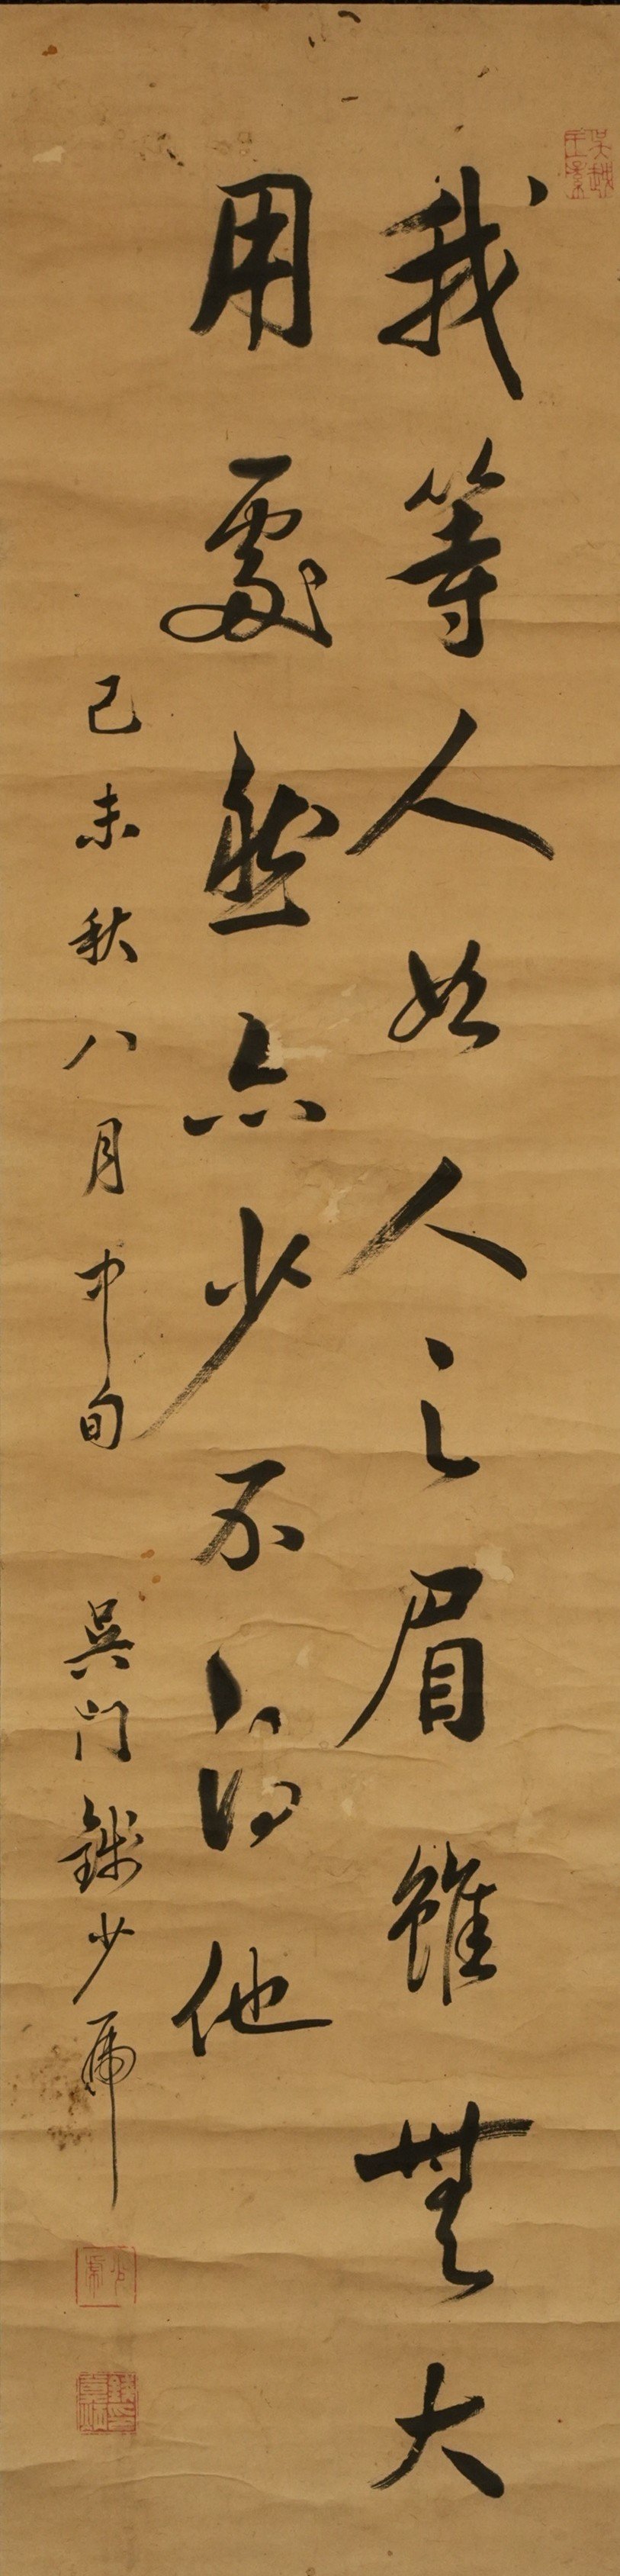 我等人如人之眉雖無大
用處然亦少不得他
己未秋八月中旬 吳門錢少虎
吳越王孫
少虎